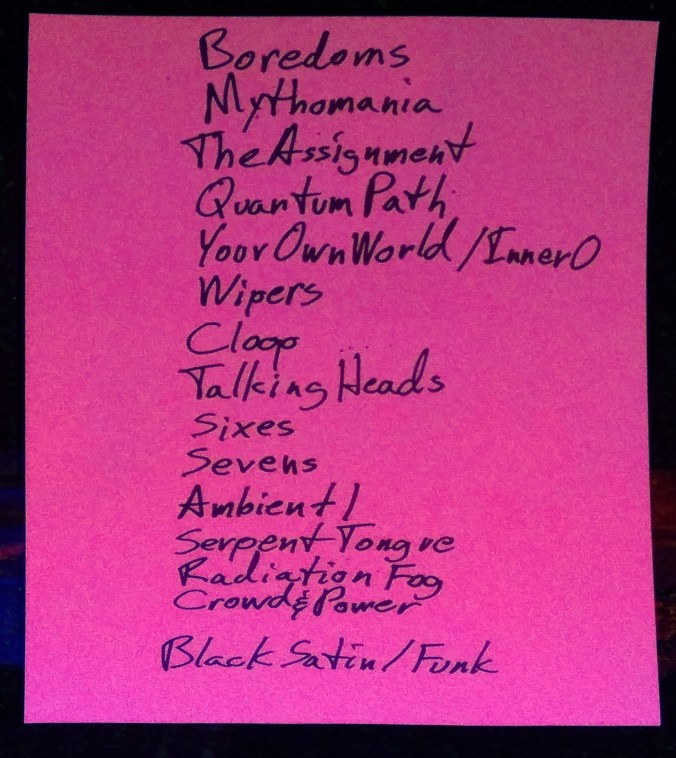 Boredoms
Mythomania
The Assignment
Quantum Path
Your Own World / Inner O
Wipers
Cloop
Talking Heads
Sixes
Sevens
Ambient 1
Serpent Tongue
Radiation Fog
Crowd & Power
Black Satin / Funk